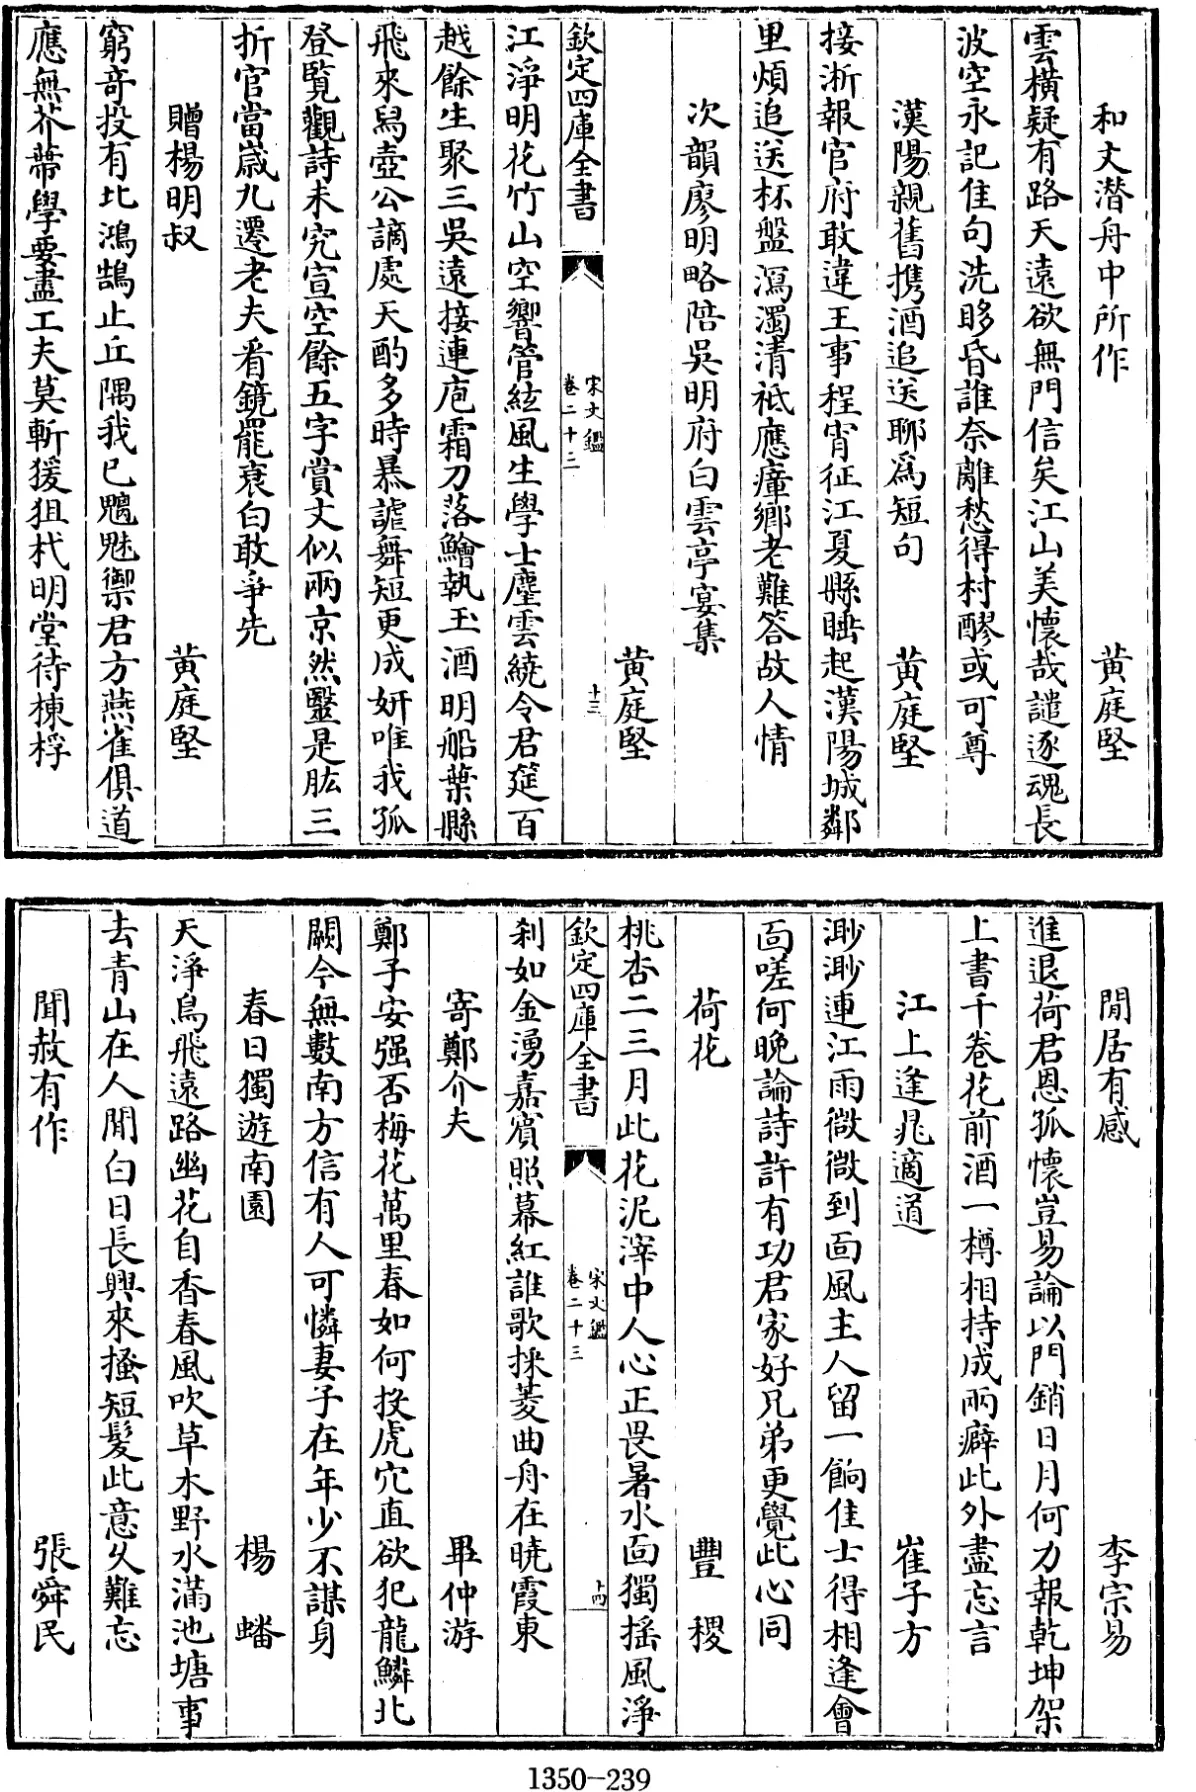 和文潛舟中所作 黃庭堅
雲橫疑有路天遠欲無門信矣江山美懷哉譴逐魂長
波空永記佳句洗眵昏誰奈離愁得村醪或可尊
漢陽親舊攜酒追送聊爲短句 黃庭堅
接淅報官府敢違王事程宵征江夏縣睡起漢陽城鄰
里煩追送杯盤瀉濁清祗應瘴鄉老難答故人情
次韻廖明略陪吳明府白雲亭宴集
黃庭堅
欽定四庫全書 宋文鑑 卷二十二 十三
江淨明花竹山空響管絃風生學士麈雲繞令君筵百
越餘生聚三吳遠接連庖霜刀落鱠執玉酒明船葉縣
飛來舄壺公謫處天酌多時暴謔舞短更成妍唯我孤
登覽觀詩未究宣空餘五字賞文似兩京然醫是肱三
折官當歲九遷老夫看鏡罷衰白敢爭先
贈楊明叔 黃庭堅
窮奇投有北鴻鵠止丘隅我已魑魅禦君方燕雀俱道
應無芥蔕學要盡工夫莫斬猨狙杙明堂待棟桴
閒居有感 李宗易
進退荷君恩孤懷豈易論以門銷日月何力報乾坤架
上書千卷花前酒一樽相持成兩癖此外盡忘言
江上逢晁適道 崔子方
渺渺連江雨微微到面風主人留一餉佳士得相逢會
面嗟何晚論詩許有功君家好兄弟更覺此心同
荷花 豐稷
桃杏二三月此花泥滓中人心正畏暑水面獨搖風淨
欽定四庫全書 宋文鑑 卷二十三 十四
刹如金湧嘉賓照幕紅誰歌採菱曲舟在曉霞東
寄鄭介夫 畢仲游
鄭子安強否梅花萬里春如何投虎穴直欲犯龍鱗北
闕今無數南方信有人可憐妻子在年少不謀身
春日獨遊南園 楊蟠
天淨鳥飛遠路幽花自香春風吹草木野水滿池塘事
去青山在人閒白日長興來搔短髮此意久難忘
聞赦有作 張舜民
1350-239